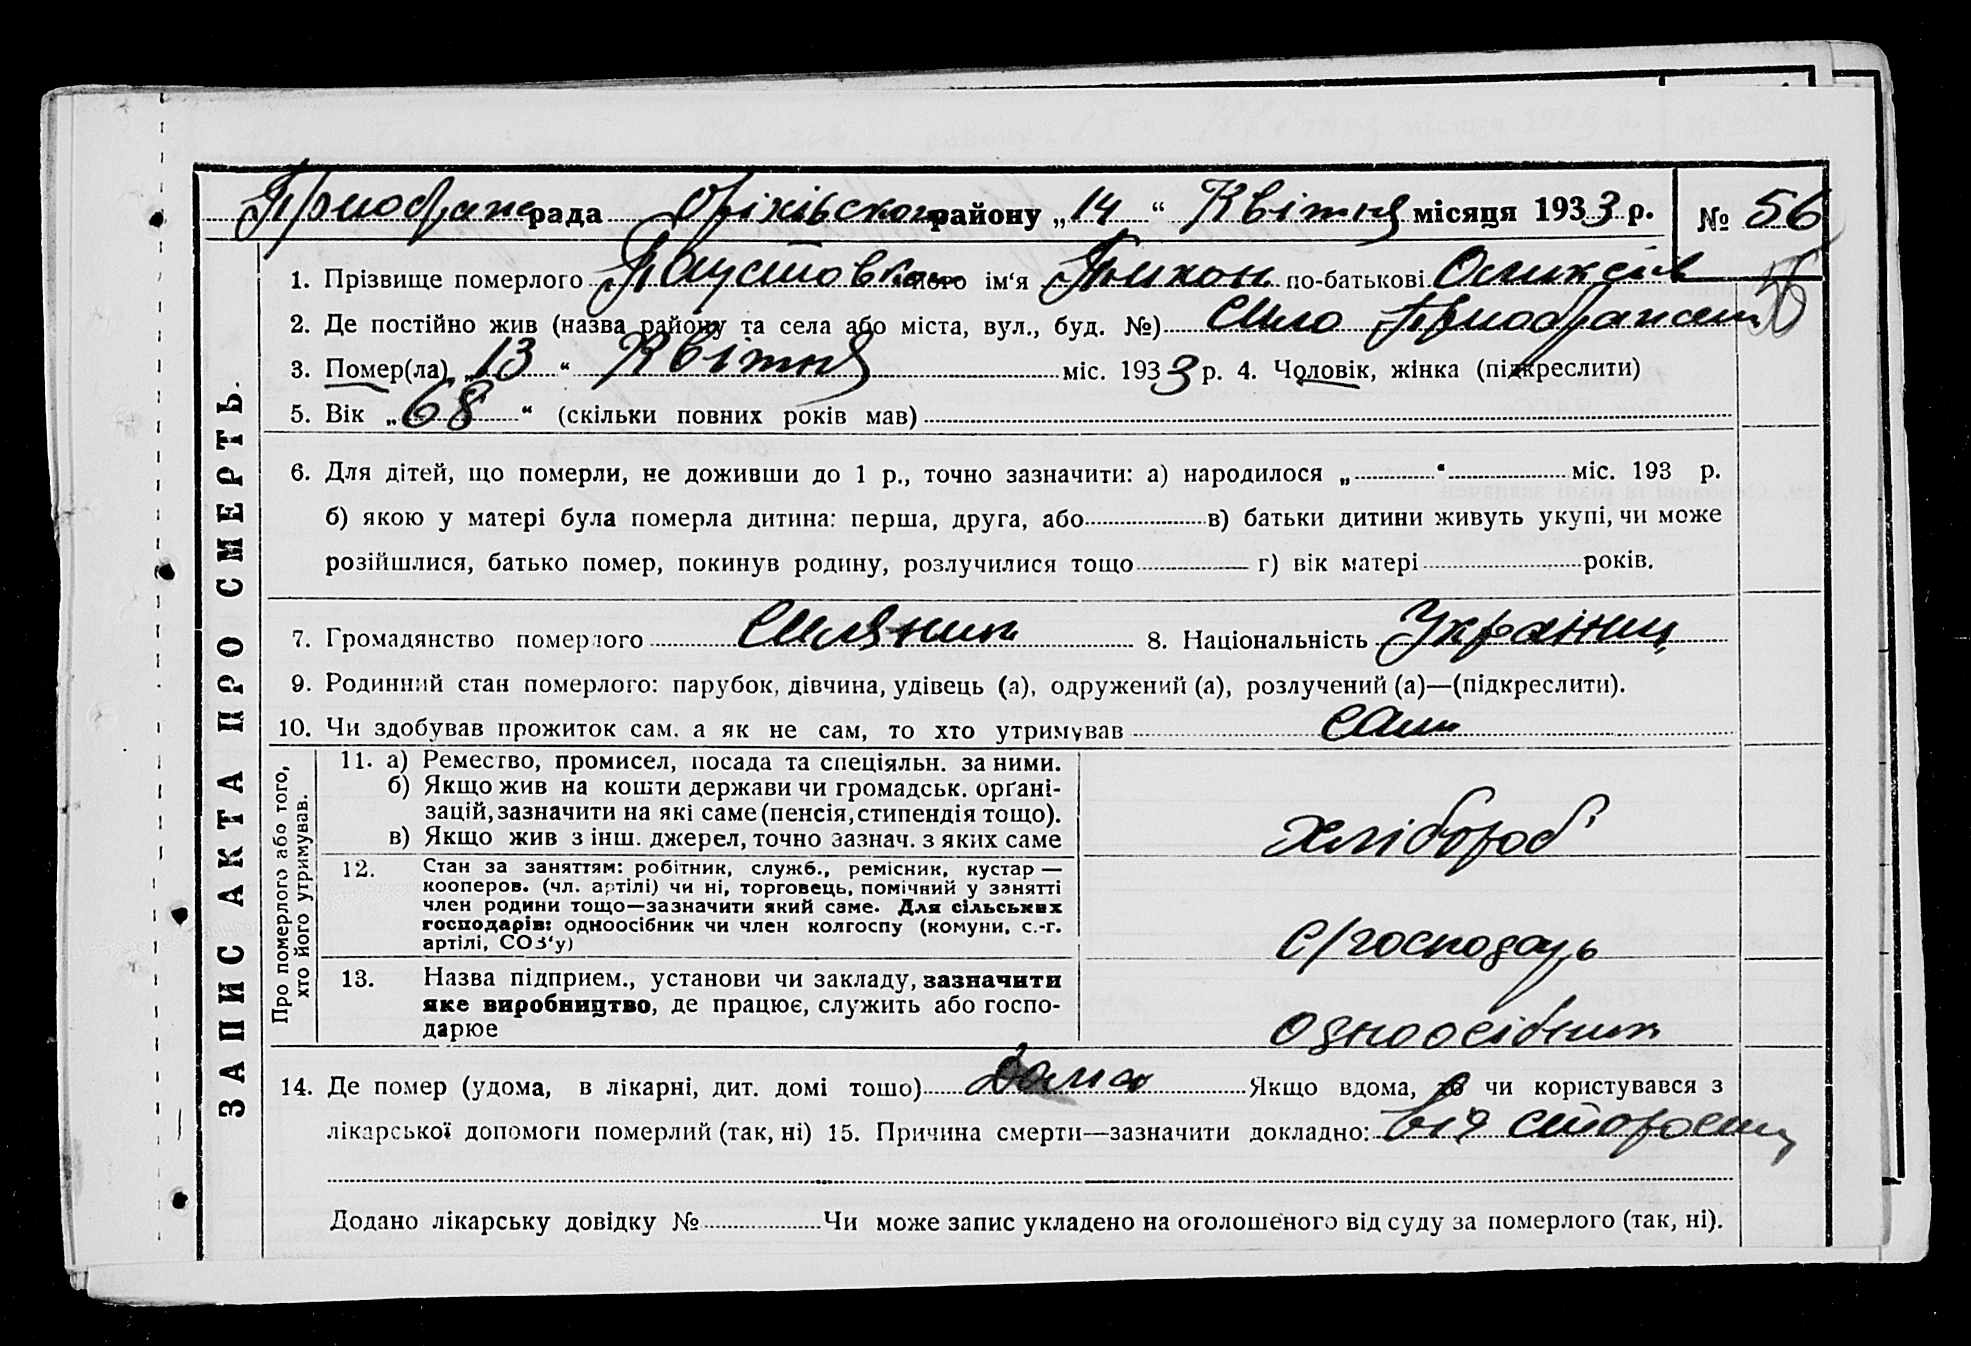 Приображенс рада Оріхівського району „14“ Квітня місяця 1933 р. № 56
1. Прізвище померлого Паустовський його ім‘я Тихон по-батькові
56
2. Де постійно жив (назва району та села або міста, вул., буд. №) село
3. Помер(ла) „13“ Квітня міс. 1933 р. 4. Чоловік, жінка (підкреслити)
5. Вік „68“ (скільки повних років мав)
6. Для дітей, що померли, не доживши до 1 р., точно зазначити: а) народилося „ “ міс. 193 р.
б) якою у матері була померла дитина: перша, друга, або в) батьки дитини живуть укупі, чи може
розійшлися, батько помер, покинув родину, розлучилися тощо г) вік матері років.
7. Громадянство померлого селянин 8. Національність Українец
9. Родинний стан померлого: парубок, дівчина, удівець (а), одружений (а), розлучений (а)—(підкреслити).
10. Чи здобував прожиток сам, а як не сам, то хто утримував сам
ЗАПИС АКТА ПРО СМЕРТЬ.
Про померлого або того,
хто його утримував.
11. а) Ремество, промисел, посада та спеціяльн. за ними.
б) Якщо жив на кошти держави чи громадськ. орґані-
зацій, зазначити на які саме (пенсія, стипендія тощо).
в) Якщо жив з інш. джерел, точно зазнач. з яких саме
хлібороб
12. Стан за заняттям: робітник, служб., ремісник, кустар —
кооперов. (чл. артілі) чи ні, торговець, помічний у занятті
член родини тощо—зазначити який саме. Для сільських
господарів: одноосібник чи член колгоспу (комуни, с.-г.
артілі, СОЗ‘у)
с/господарь
13. Назва підприєм., установи чи закладу, зазначити
яке виробництво, де працює, служить або госпо-
дарює
одноосібник
14. Де помер (удома, в лікарні, дит. домі тощо) дома Якщо вдома, то чи користувався з
лікарської допомоги померлий (так, ні) 15. Причина смерти—зазначити докладно: від старости
Додано лікарську довідку № Чи може запис укладено на оголошеного від суду за померлого (так, ні).